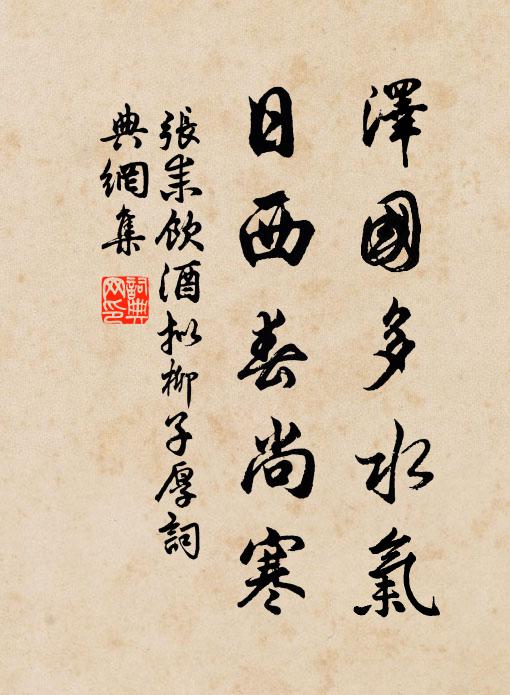 澤國多水氣
日西春尚寒
張耒飲酒擬柳子厚詞
典網集
詞典
网印